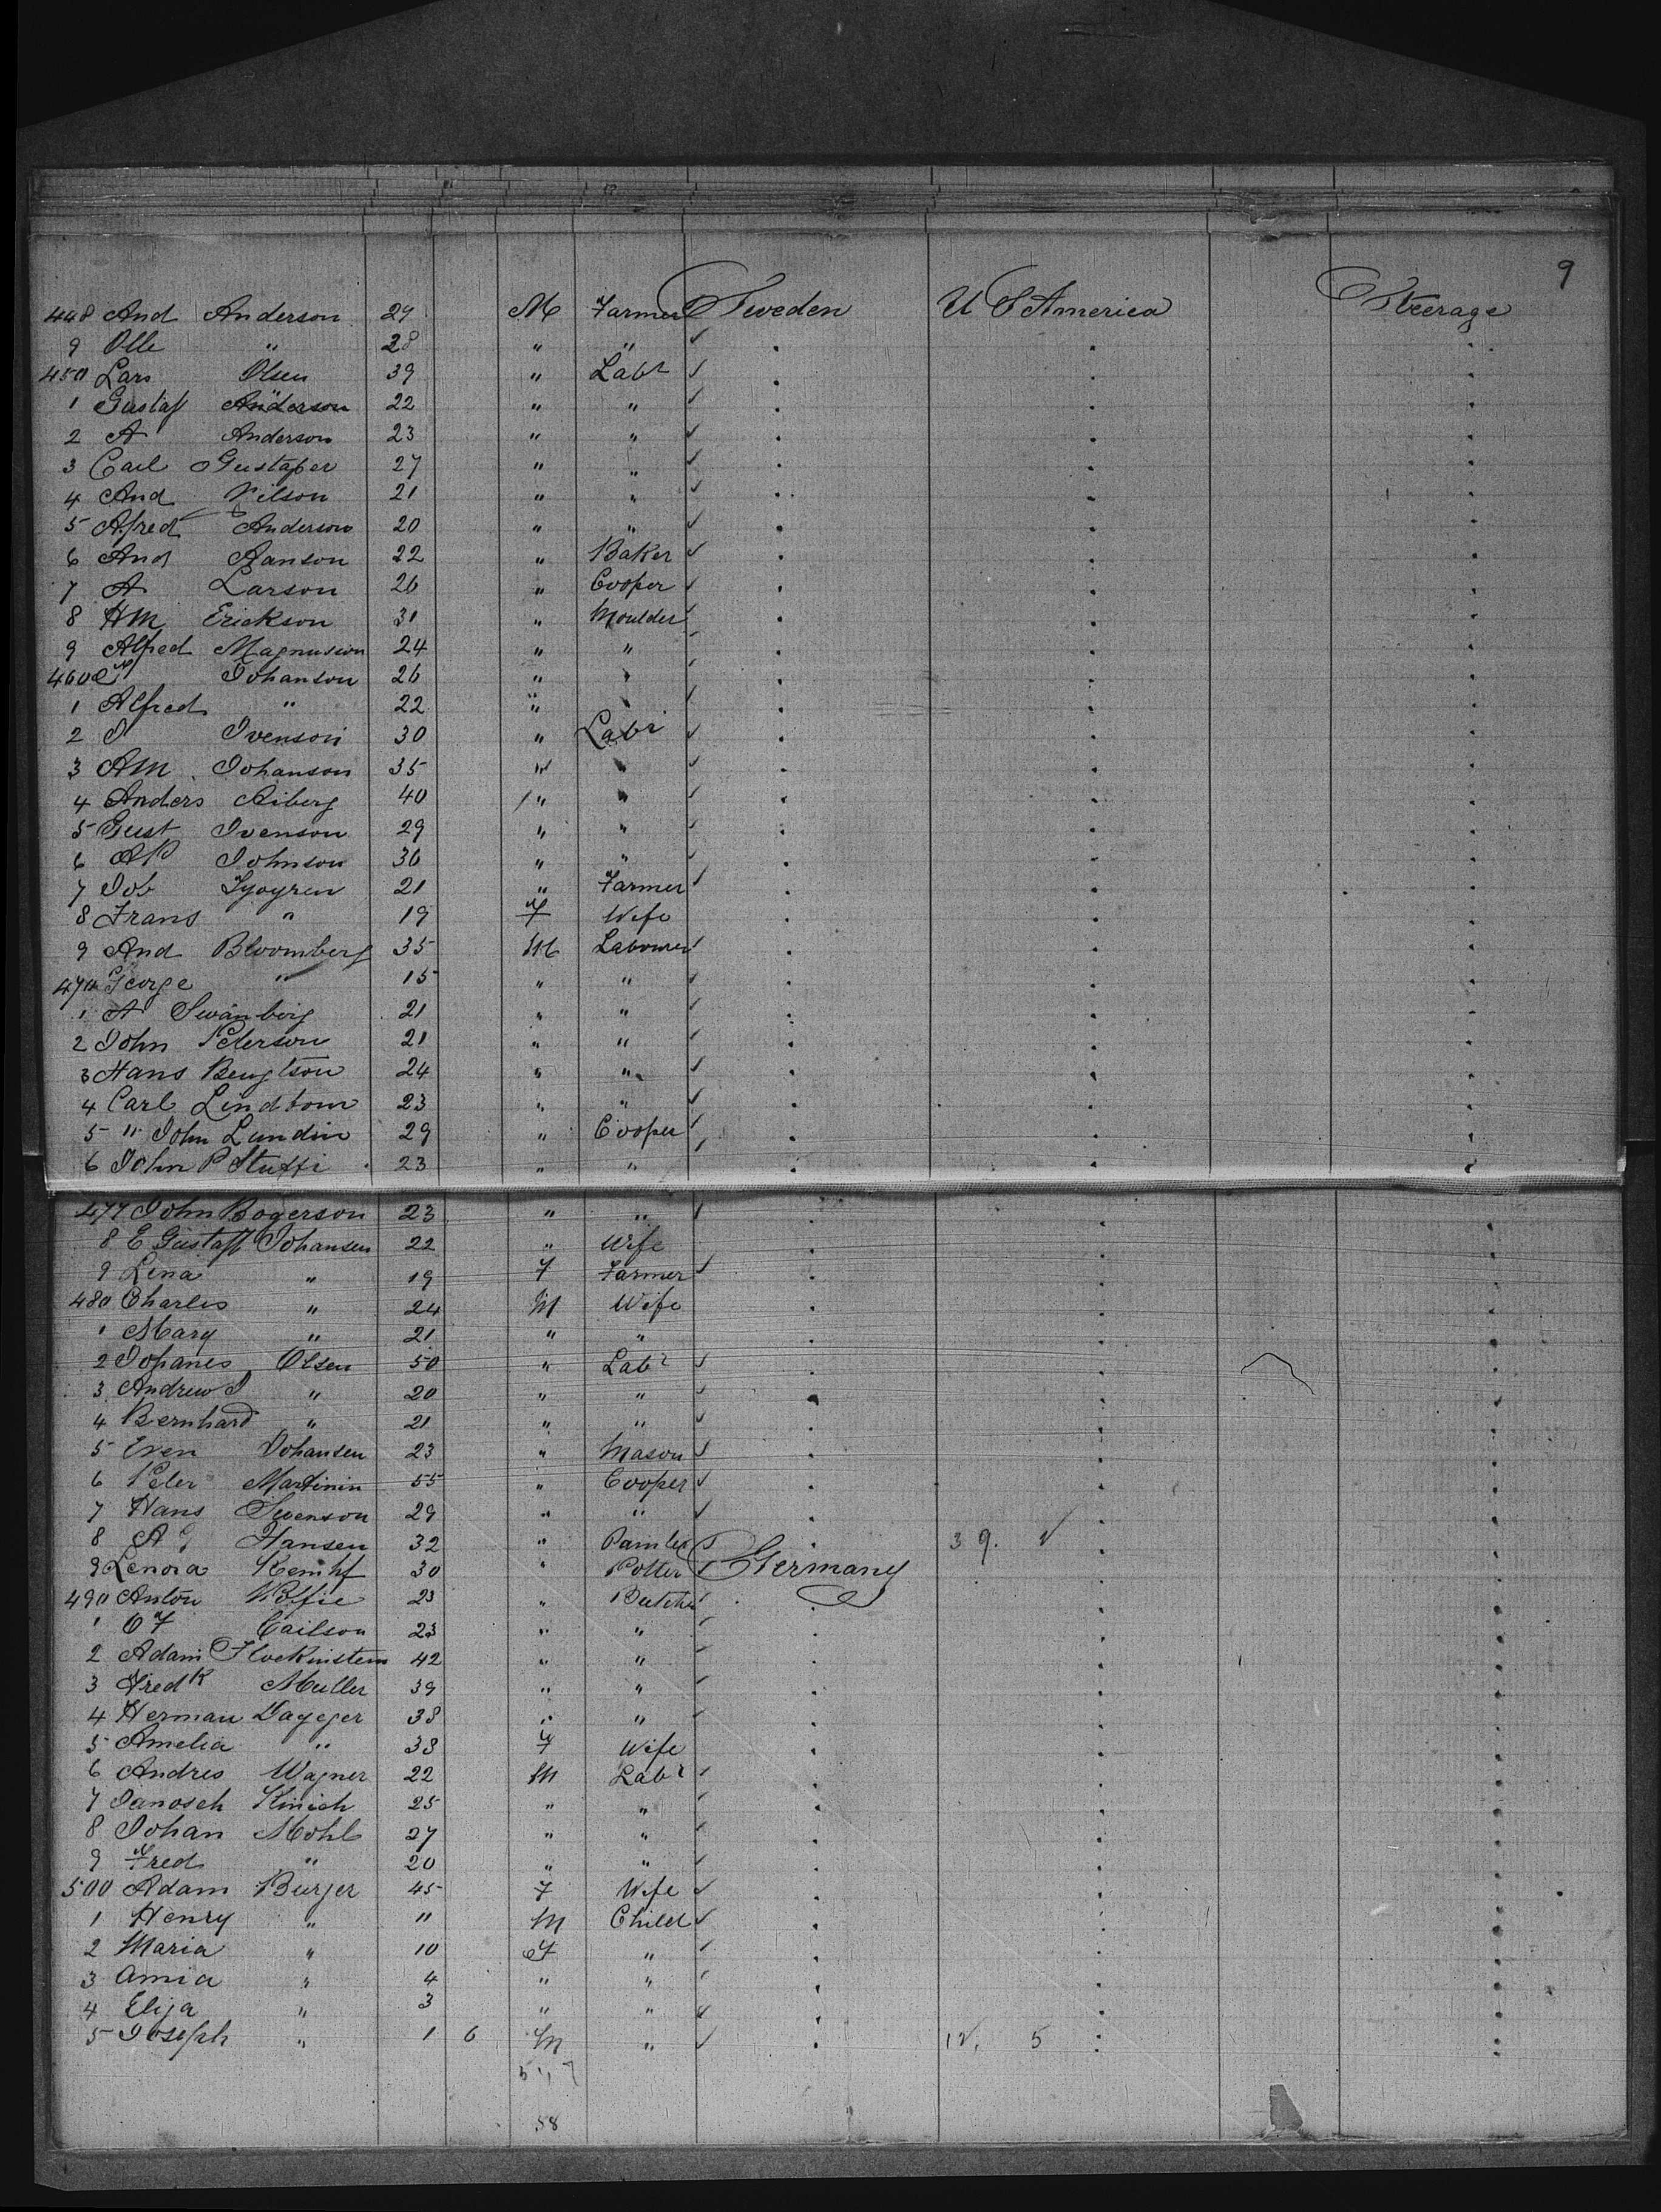 9
448 And Anderson 29 M Farmer Sweden U S America Steerage
9 Olle " 28 " "
450 Lars Olsen 39 " Labr
1 Gustaf Anderson 22 " "
2 A Anderson 23 " "
3 Carl Gustafer 27 " "
4 And Nilson 21 " "
5 Alfred Anderson 20 " "
6 And Aanson 22 " Baker
7 A Larson 26 " Cooper
8 HM Erickson 31 " Moulder
9 Alfred Magnuson 24 " "
460 Johanson 26 " "
1 Alfred " 22 " "
2 J Ivenson 30 " Labr
3 AM Johanson 35 " "
4 Anders Aiberg 40 " "
5 Gust Ivenson 29 " "
6 AP Johnson 36 " "
7 Job 21 " Farmer
8 Frans " 19 F Wife
9 And Bloomberg 35 M Labourer
470 George " 15 " "
1 A Swanberg 21 " "
2 John Peterson 21 " "
3 Hans Bengtson 24 " "
4 Carl Lindbom 23 " "
5 " John Lundin 29 " Cooper
6 John P 23 " "
477 John Bogerson 23 " "
8 E Gustaff Johansen 22 " Wife
9 Lina " 19 F Farmer
480 Charles " 24 M Wife
1 Mary " 21 " "
2 Johanes Olsen 50 " Labr
3 Andrew J " 20 " "
4 Bernhard " 21 " "
5 Even Johansen 23 " Mason
6 Peter Martinin 55 " Cooper
7 Hans Swenson 29 " "
8 A G Hansen 32 " Painter 39.
9 Lenora Kemhf 30 " Potter Germany
490 Anton 23 " Butcher
1 Cailson 23 " "
2 Adam Flockinstem 42 " "
3 Fredk Muller 39 " "
4 Herman Dayeger 38 " "
5 Amelia " 38 F Wife
6 Andres Wagner 22 M Labr
7 Janosch Kinich 25 " "
8 Johan Mohl 27 " "
9 Fred " 20 " "
500 Adam Burger 45 F Wife
1 Henry " 11 M Child
2 Maria " 10 F "
3 Amia " 4 " "
4 Eliza " 3 " "
5 Joseph " 1 6 M " 5
58